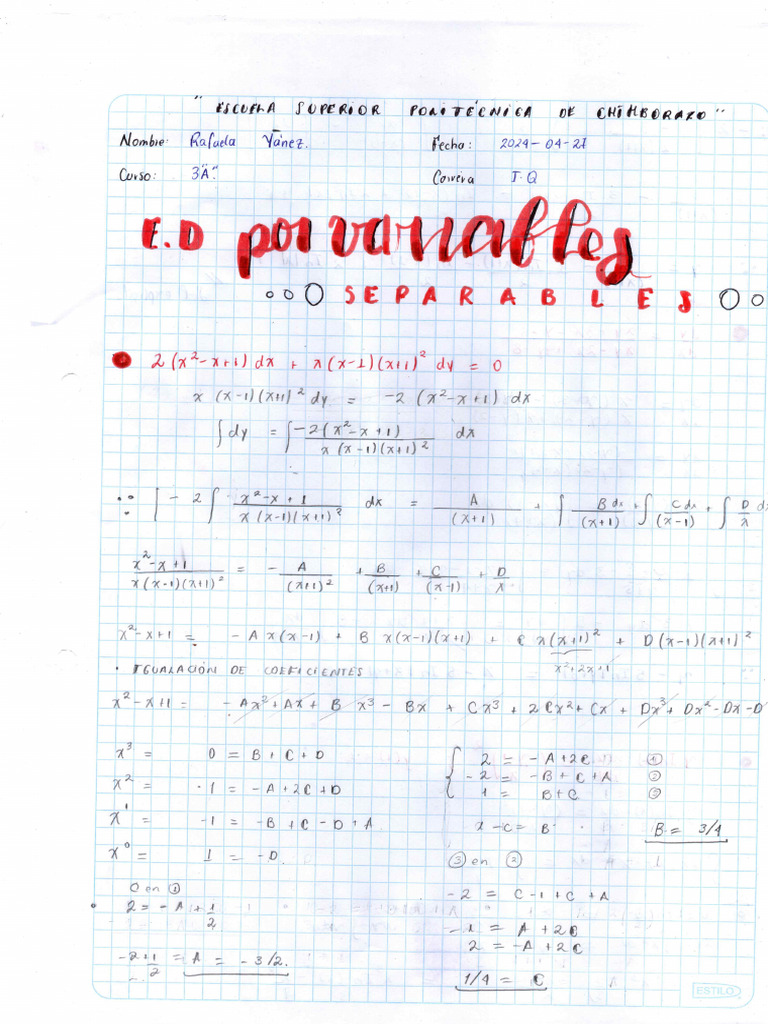 " ESCUELA SUPERIOR POLITÉCNICA DE CHIMBORAZO "
Nombre: Rafaela Yánez. Fecha: 2024-04-27
Curso: 3"A". Carrera I.Q
E.D por variables
SEPARABLES
2(x²-x+1) dx + x(x-1)(x+1)² dy = 0
x (x-1)(x+1)² dy = -2 (x²-x+1) dx
∫ dy = ∫ -2(x²-x+1) / x(x-1)(x+1)² dx
∴ ∫ -2 ∫ x²-x+1 / x(x-1)(x+1)² dx = A / (x+1) + ∫ B dx / (x+1) + ∫ C dx / (x-1) + ∫ D / x dx
x²-x+1 / x(x-1)(x+1)² = - A / (x+1)² + B / (x+1) + C / (x-1) + D / x
x²-x+1 = -A x(x-1) + B x(x-1)(x+1) + C x(x+1)² + D(x-1)(x+1)²
x²+2x+1
· IGUALACIÓN DE COEFICIENTES
x²-x+1 = -Ax²+Ax + B x³ - Bx + Cx³ + 2Cx² + Cx + Dx³ + Dx² - Dx - D
x³ = 0 = B + C + D
x² = 1 = -A+2C+D
x¹ = -1 = -B + C - D + A
x⁰ = 1 = -D.
0 en ①
2 = -A + 1/2
-2+1/2 = A = -3/2.
2 = -A + 2C ①
-2 = -B + C + A ②
1 = B+C ③
x -C = B B = 3/4
③ en ②
-2 = C-1+C+A
-1 = A + 2C
2 = -A + 2C
1/4 = C
ESTILO